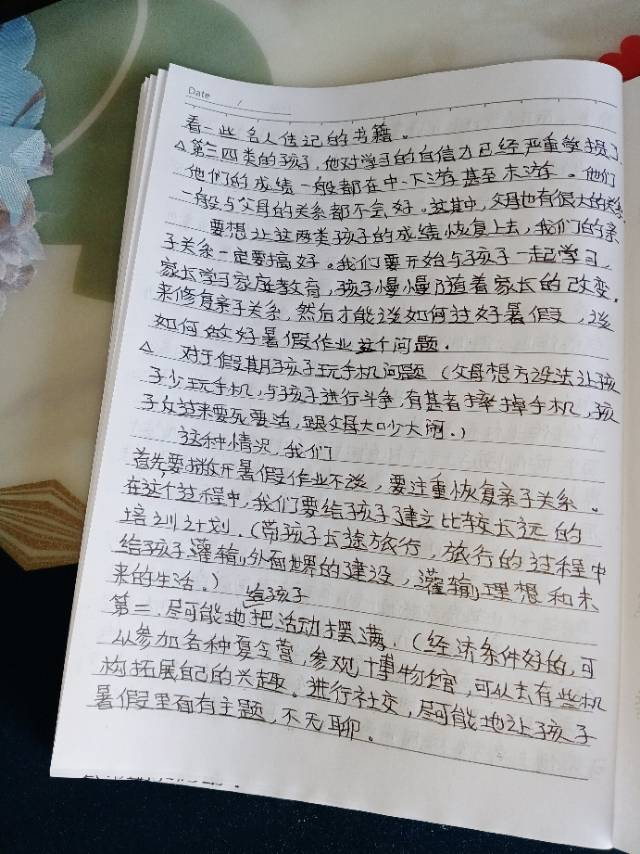 Date /
看一些名人传记的书籍。
△第三四类的孩子,他对学习的自信力已经严重受损了
他们的成绩一般都在中、下游甚至末游。他们
一般与父母的关系都不会好。这其中,父母也有很大的关系
要想让这两类孩子的成绩恢复上去,我们的亲
子关系一定要搞好。我们要开始与孩子一起学习,
家长学习家庭教育,孩子慢慢随着家长的改变,
来修复亲子关系,然后才能谈如何过好暑假,谈
如何做好暑假作业这个问题.
△ 对于假期孩子玩手机问题(父母想方设法让孩
子少玩手机,与孩子进行斗争,有甚者摔掉手机,孩
子反过来要死要活,跟父母大吵大闹.)
这种情况,我们
首先要撇开暑假作业不谈,要注重恢复亲子关系。
在这个过程中,我们要给孩子建立比较长远的
培训计划.(带孩子长途旅行,旅行的过程中
给孩子灌输外面世界的建设,灌输理想和未
来的生活。) 给孩子
第二,尽可能地把活动摆满.(经济条件好的,可
以参加各种夏令营,参观博物馆,可以去有些机
构拓展自己的兴趣。进行社交,尽可能地让孩子
暑假里面有主题,不无聊。